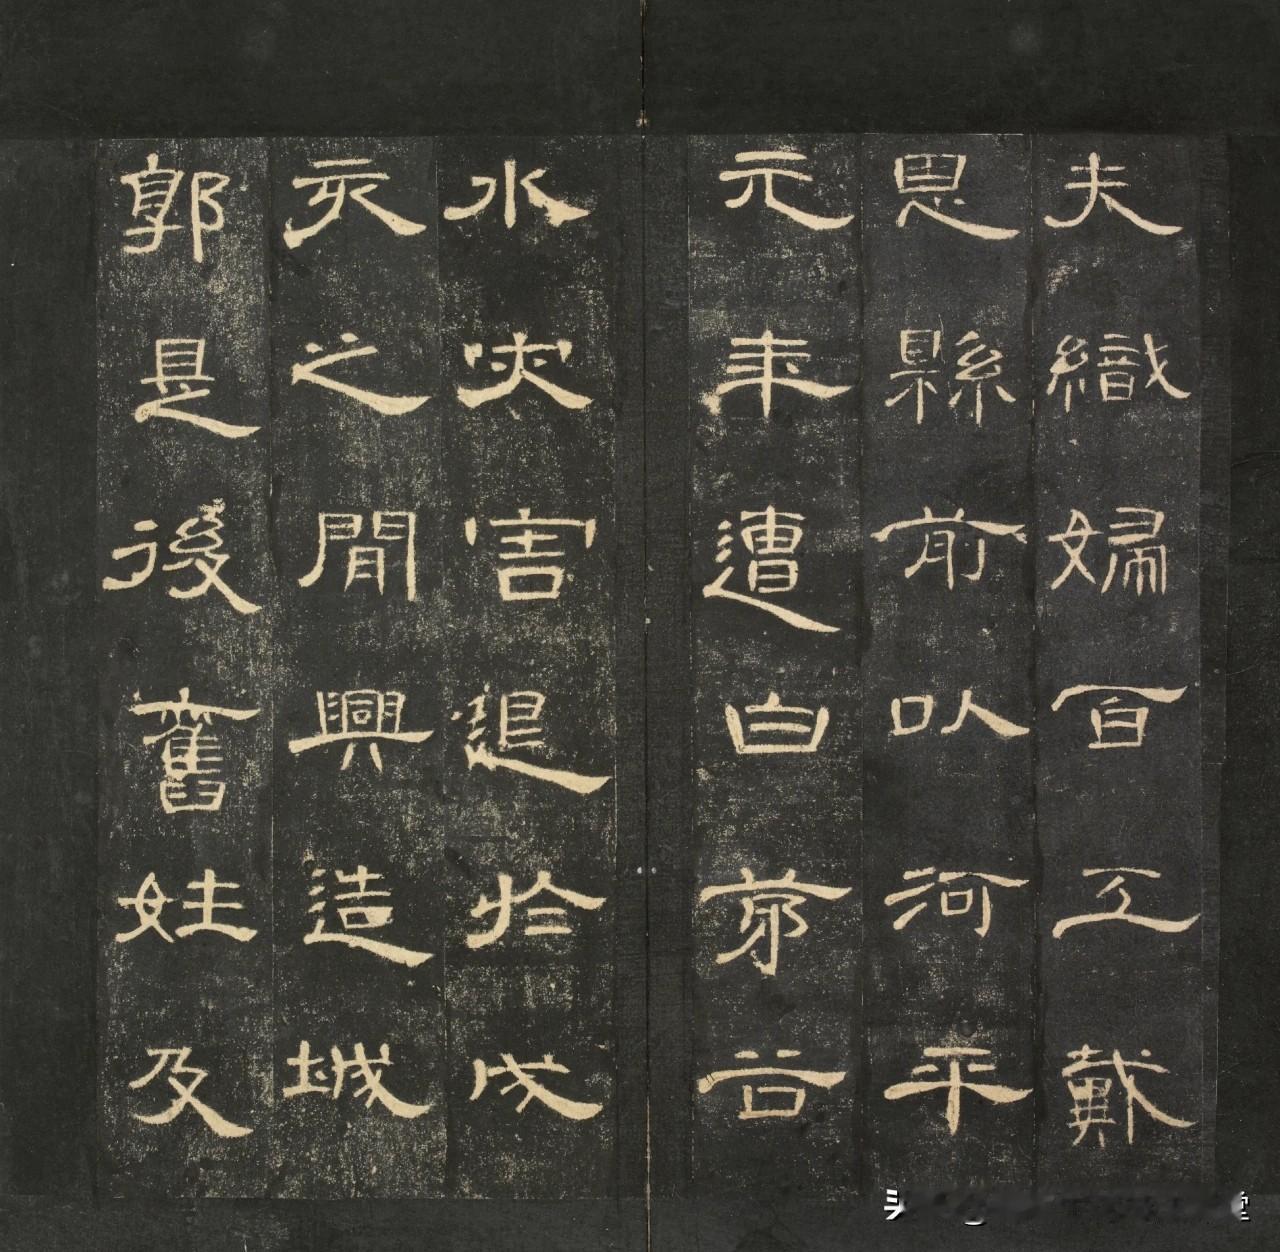 夫織婦百工戴
恩縣前以河平
元年遭白茅谷
水灾害退於戌
亥之閒興造城
郭是後舊姓及